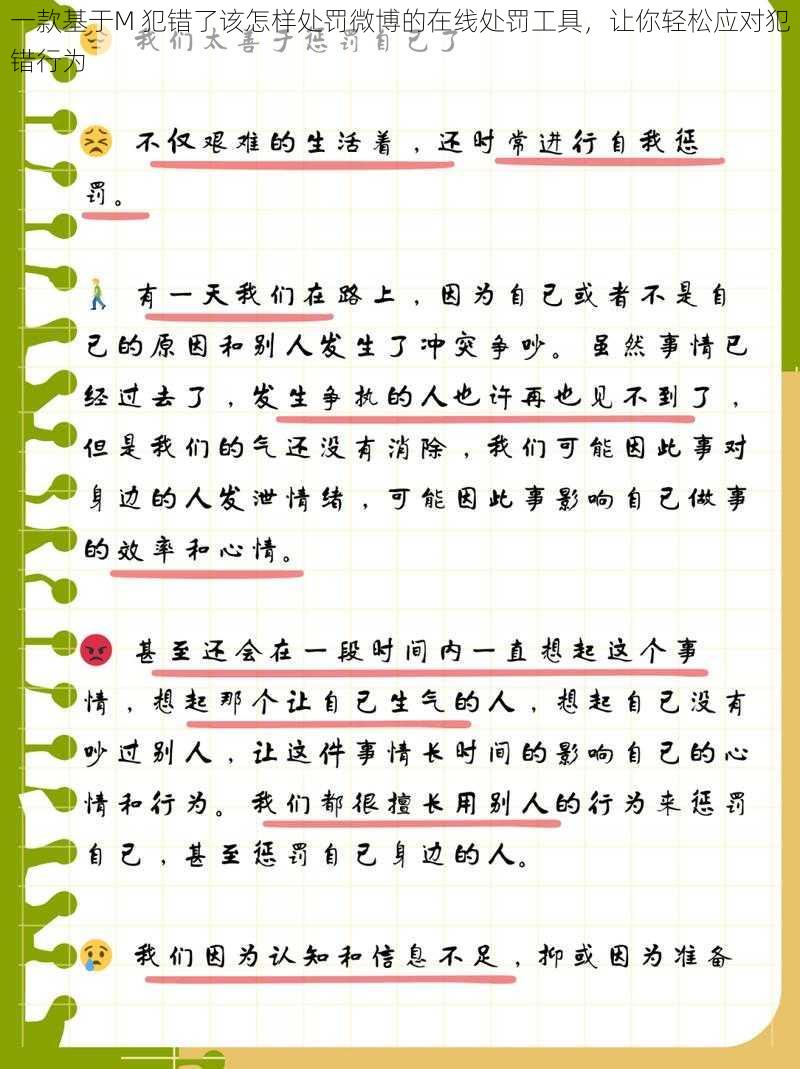 一款基于M 犯错了该怎样处罚微博的在线处罚工具，让你轻松应对犯
错行为
我们太善于惩罚自己了
不仅艰难的生活着，还时常进行自我惩
罚。
有一天我们在路上，因为自己或者不是自
己的原因和别人发生了冲突争吵。虽然事情已
经过去了，发生争执的人也许再也见不到了，
但是我们的气还没有消除，我们可能因此事对
身边的人发泄情绪，可能因此事影响自己做事
的效率和心情。
甚至还会在一段时间内一直想起这个事
情，想起那个让自己生气的人，想起自己没有
吵过别人，让这件事情长时间的影响自己的心
情和行为。我们都很擅长用别人的行为来惩罚
自己，甚至惩罚自己身边的人。
我们因为认知和信息不足，抑或因为准备